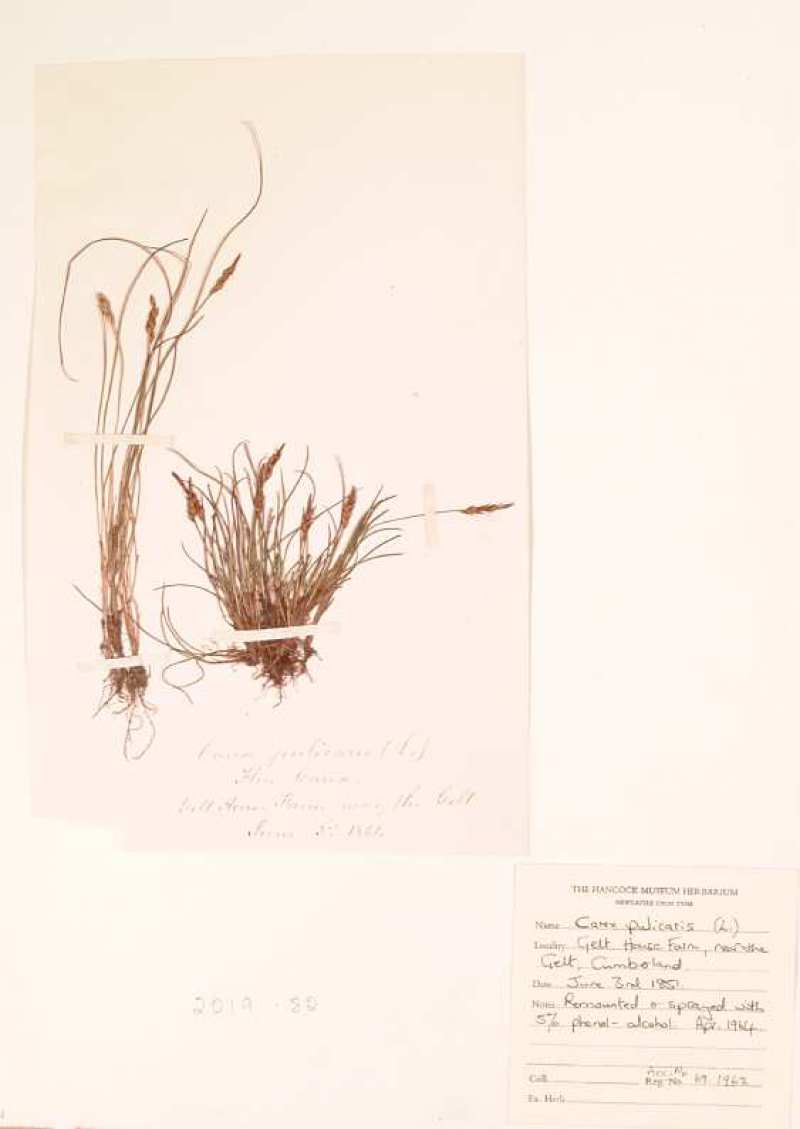 Carex pulicaris (L.)
Flea Carex.
Gelt House Farm near the Gelt
June 3rd
THE HANCOCK MUSEUM HERBARIUM
NEWCASTLE UPON TYNE
Name Carex pulicaris (L.)
Locality Gelt House Farm, near the
Gelt, Cumberland.
Date June 3rd 1851.
Notes Remounted & sprayed with
5% phenol-alcohol. Apr. 1964.
Coll.
Acc. No.
Reg. No. 69. 1962
Ex. Herb.
2019 . 80